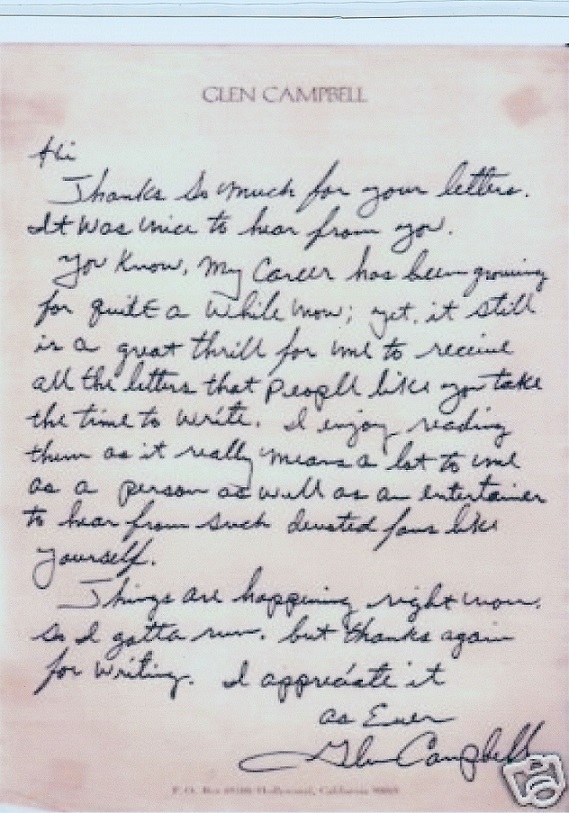 GLEN CAMPBELL
Hi
Thanks so much for your letters.
It was nice to hear from you.
You know, my career has been growing
for quite a while now; yet, it still
is a great thrill for me to receive
all the letters that people like you take
the time to write. I enjoy reading
them as it really means a lot to me
as a person as well as an entertainer
to hear from such devoted fans like
yourself.
Things are happening right now,
so I gotta run, but thanks again
for writing. I appreciate it
as Ever
Glen Campbell
P.O. Box Hollywood, California